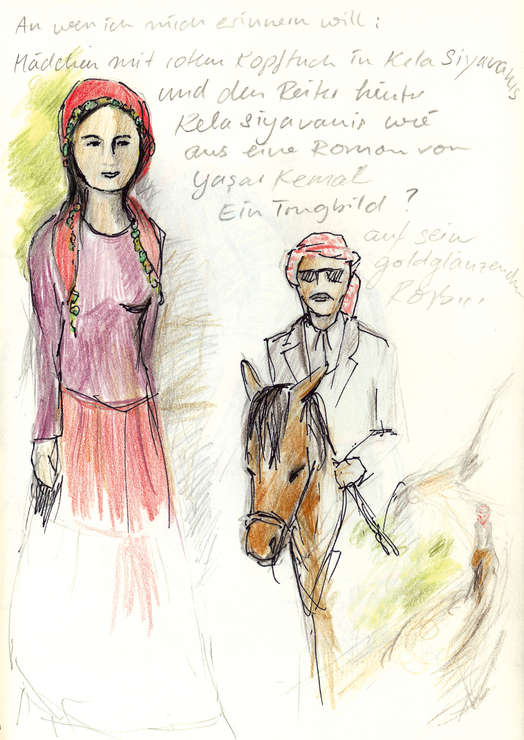 An wen ich mich erinnern will:
Mädchen mit rotem Kopftuch in Kela Siyavanis
und den Reiter hinter
Kela Siyavanis wie
aus eine Roman von
Yaşar Kemal
Ein Trugbild?
auf sein
goldglänzenden